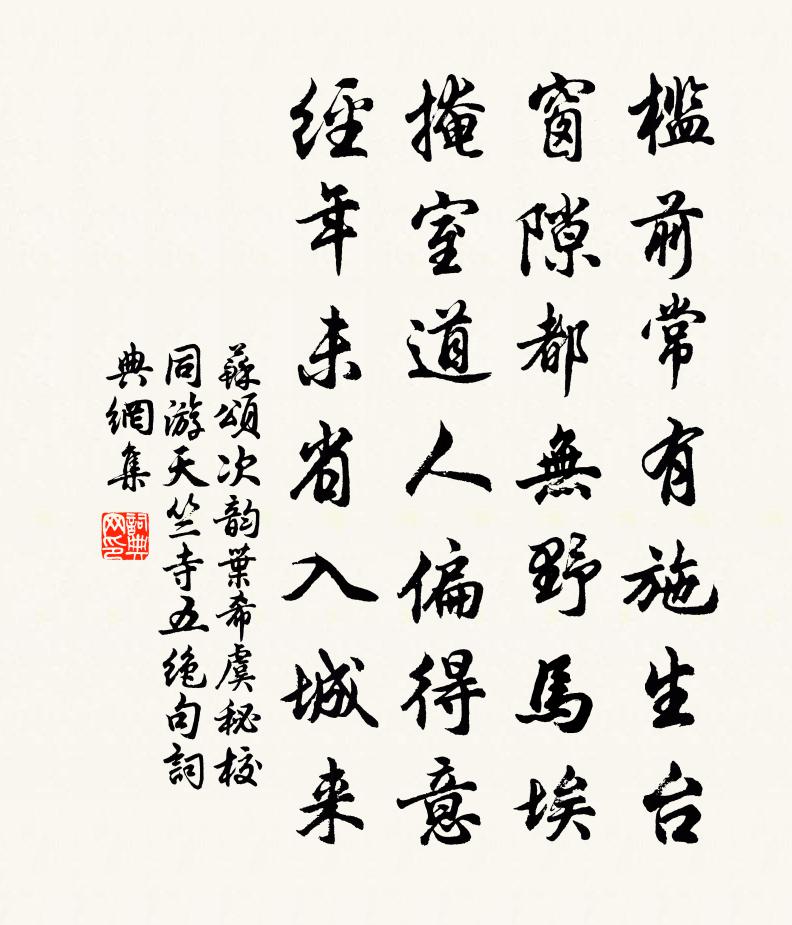 檻前常有施生台
窗隙都無野馬埃
掩室道人偏得意
經年未省入城来
蘇頌次韵葉希虞秘校
同游天竺寺五絶句詞
典網集
詞典网印